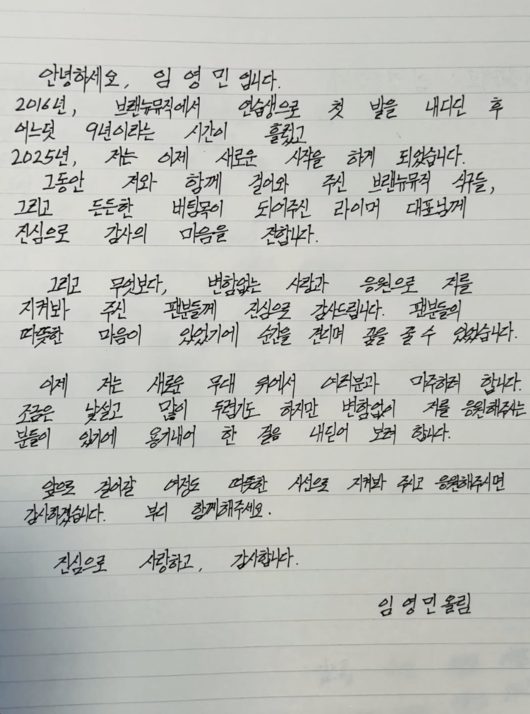 안녕하세요, 임영민입니다.
2016년, 브랜뉴뮤직에서 연습생으로 첫 발을 내디딘 후
어느덧 9년이라는 시간이 흘렀고
2025년, 저는 이제 새로운 시작을 하게 되었습니다.
그동안 저와 함께 걸어와 주신 브랜뉴뮤직 식구들,
그리고 든든한 버팀목이 되어주신 라이머 대표님께
진심으로 감사의 마음을 전합니다.
그리고 무엇보다, 변함없는 사랑과 응원으로 저를
지켜봐 주신 팬분들께 진심으로 감사드립니다. 팬분들의
따뜻한 마음이 있었기에 순간을 견디며 꿈을 꿀 수 있었습니다.
이제 저는 새로운 무대 위에서 여러분과 마주하려 합니다.
조금은 낯설고 많이 두렵기도 하지만 변함없이 저를 응원해주시는
분들이 있기에 용기내어 한 걸음 내딛어 보려 합니다.
앞으로 걸어갈 여정도 따뜻한 시선으로 지켜봐 주시고 응원해주시면
감사하겠습니다. 부디 함께해주세요.
진심으로 사랑하고, 감사합니다.
임영민 올림